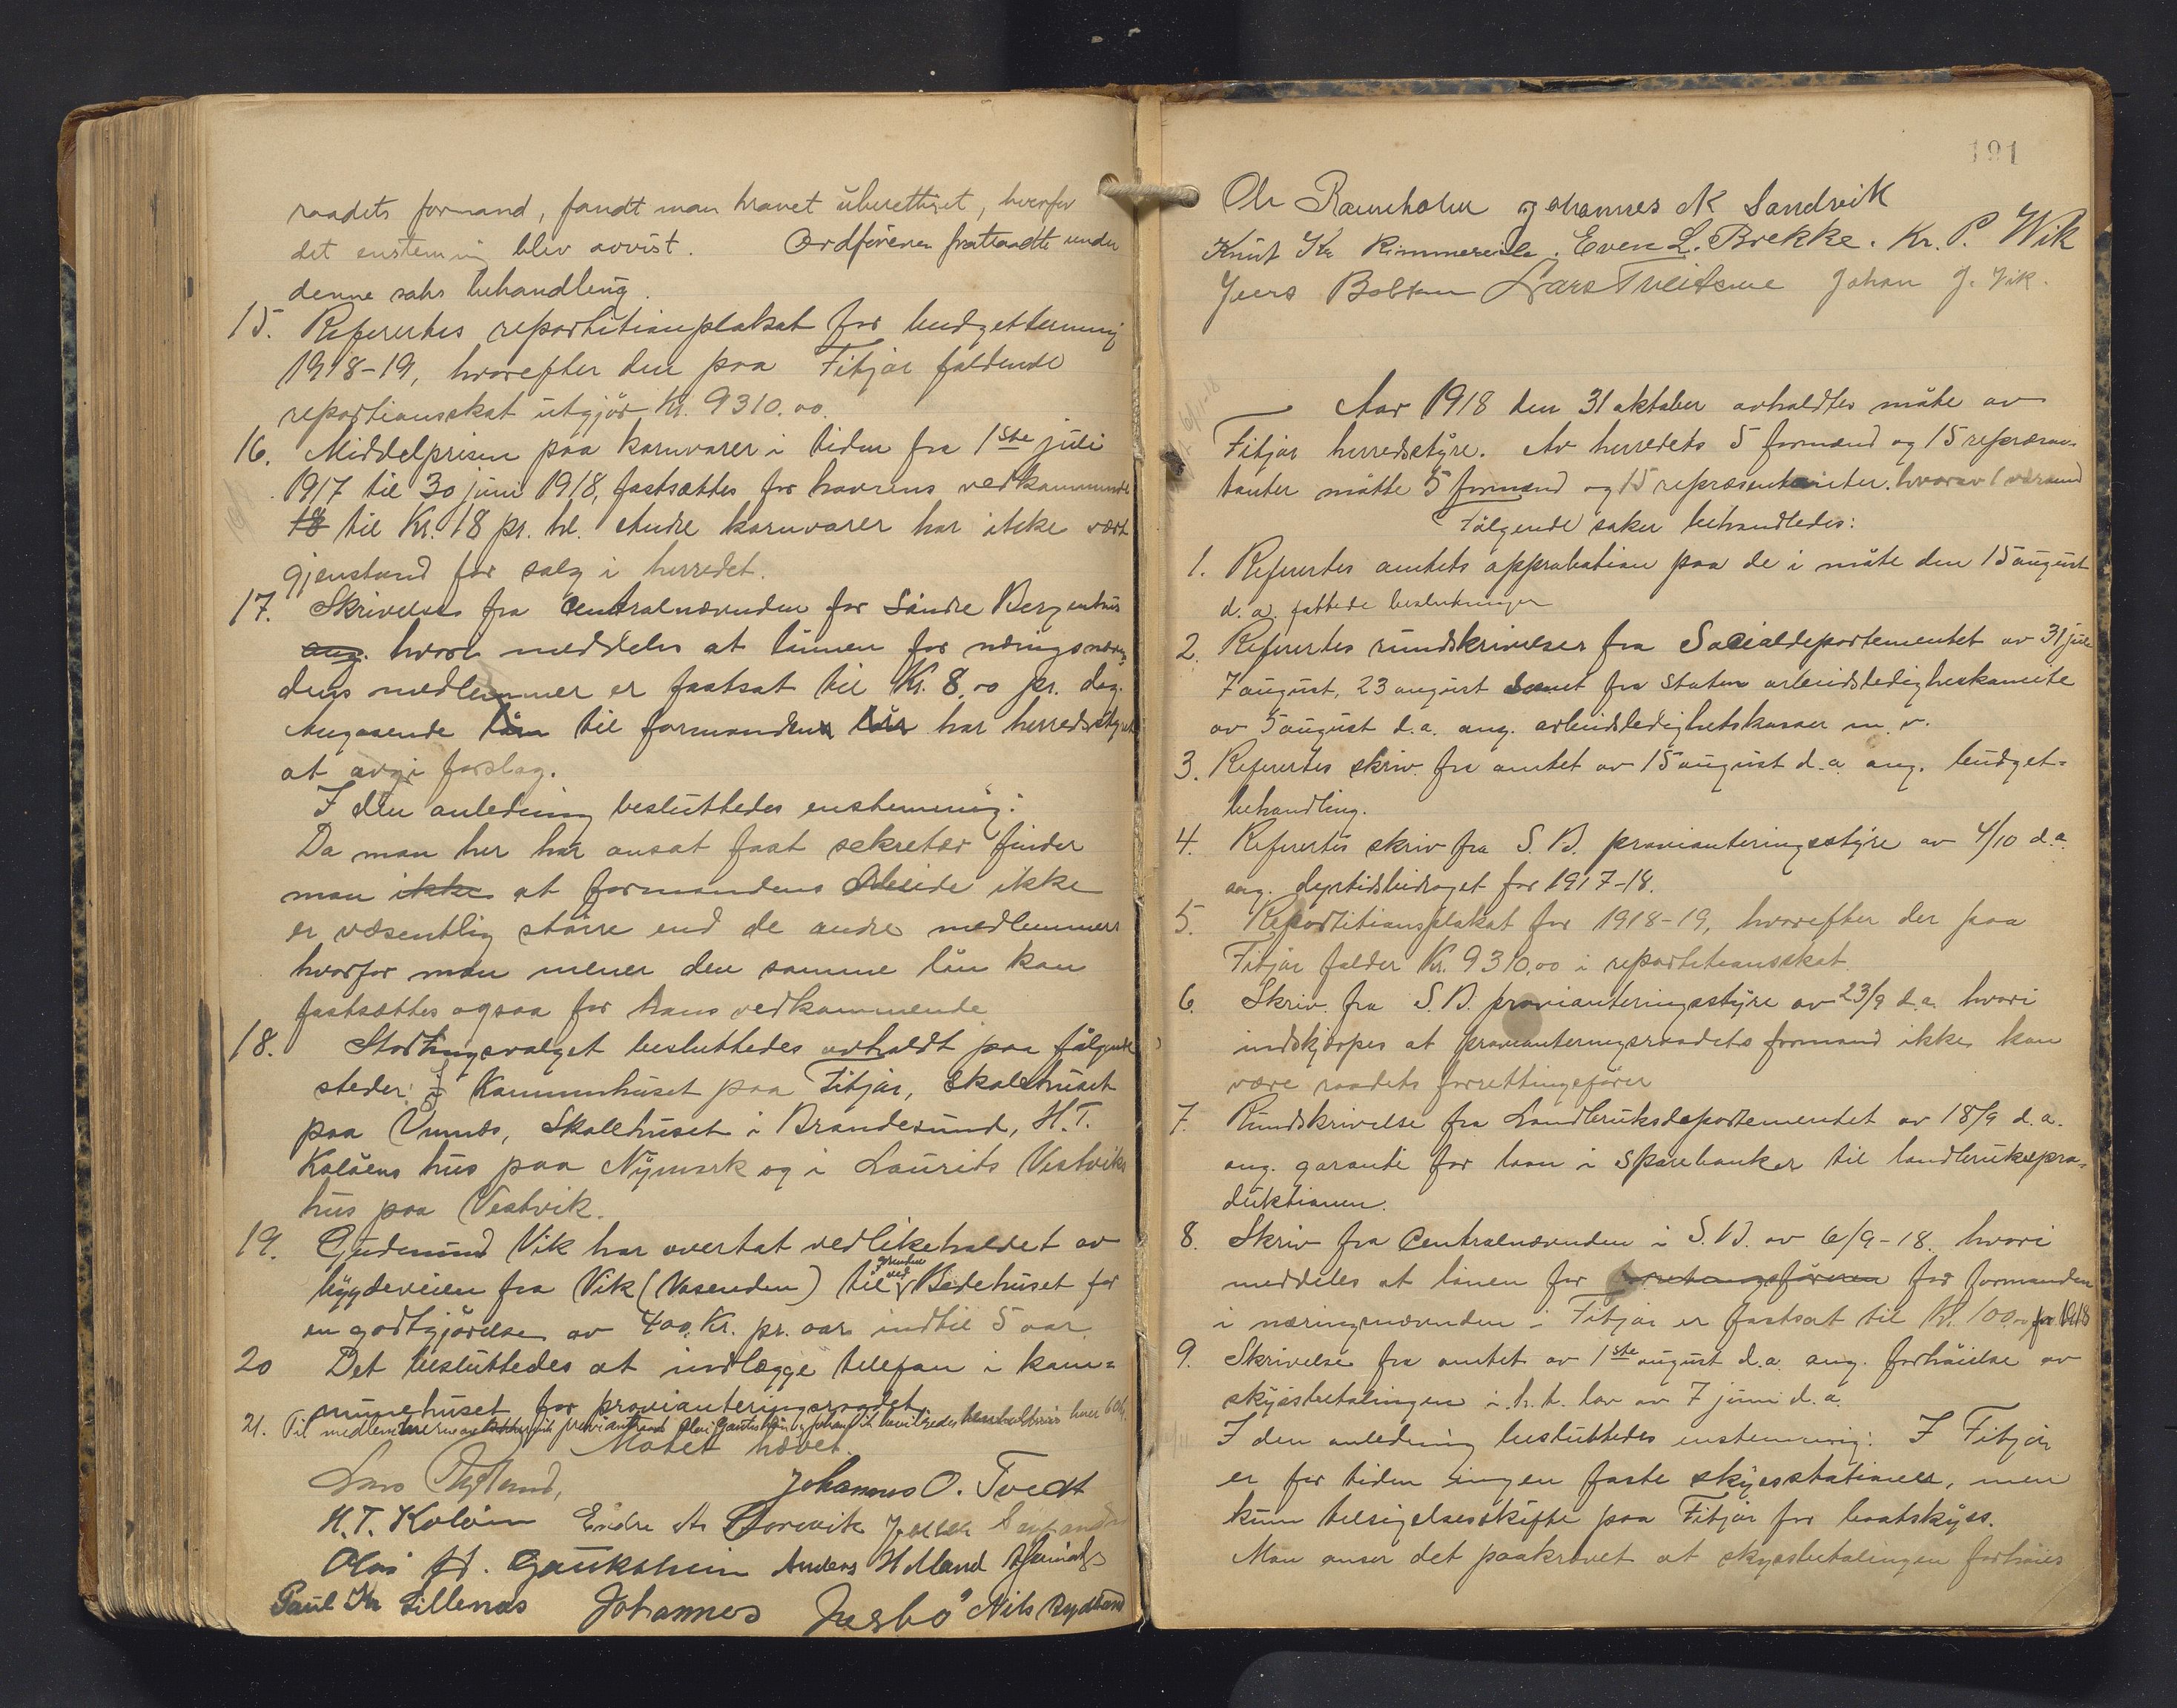 raadets formand, fandt man kravet uberettiget, hvorfor
det enstemmig blev avvist. Ordføreren fratraadte under
denne saks behandling.
15. Refertes repartitionsplakat for budgettermin
1918-19, hvorefter den paa Fitjar faldende
repartionsskat utgjør Kr. 9310.00.
16. Middelprisen paa kornvarer i tiden fra 1ste juli
1917 til 30 juni 1918, fastsættes for havrens vedkommende
til Kr. 18 pr. hl. Andre kornvarer har ikke vært
gjenstand for salg i herredet.
17. Skrivelse fra Centralnævnden for Søndre Bergenhus
ang. hvori meddeles at lønnen for næringsnævn-
dens medlemmer er fastsat til Kr. 8.00 pr. dag.
Angaaende løn til formanden har herredsstyret
at avgi forslag.
I den anledning besluttedes enstemmig:
Da man her har ansat fast sekretær finder
man ikke at formandens arbeide ikke
er væsentlig større end de andre medlemmers
hvorfor man mener den samme løn kan
fastsættes ogsaa for hans vedkommende
18. Stortingsvalget besluttedes avholdt paa følgende
steder: I Kommunhuset paa Fitjar, Skolehuset
paa Vumes, Skolehuset i Brandesund, H. T.
Koløens hus paa Nymark og i Laurits Vestviks
hus paa Vestvik.
19. Gudmund Vik har overtat vedlikeholdet av
bygdeveien fra Vik (Vasenden) til grinden ved Bedehuset for
en godtgjørelse av 400 Kr. pr. aar indtil 5 aar.
20 Det besluttedes at indlægge telefon i kom-
munehuset for provianteringsraadet.
21. Til medlemmerne
Møtet hævet.
Lars Rydland, Johannes O. Tvedt
H. T. Koløen Endre A. Storevik
Olai H. Gaukstein Anders Helland
Paul Kr Lillenes Johannes Græsbø Nils Rydland
191
Ole Raunholm Johannes K Sandvik
Knut Kr Rimmereide. Even L. Brekke. Kr. P. Wik
Jens Lars Johan J. Vik.
Aar 1918 den 31 oktober avholdtes møte av
Fitjar herredsstyre. Av herredets 5 formænd og 15 repræsen-
tanter møtte 5 formænd og 15 repræsentanter. hvorav 1 varamand
Følgende saker behandledes:
1. Refertes amtets approbation paa de i møte den 15 august
d. a. fattede beslutninger
2. Refertes rundskrivelser fra Socialdepartementet av 31 juli
7 august, 23 august samt fra statens arbeidsledighetskomite
av 5 august d. a. ang. arbeidsledighetskasser m. v.
3. Refertes skriv. fra amtet av 15 august d. a. ang. budget-
behandling.
4. Refertes skriv fra S. B. provianteringsstyre av 4/10 d. a.
ang. dyrtidsbidraget for 1917-18.
5. Repartitionsplakat for 1918-19, hvorefter der paa
Fitjar falder Kr. 9310,00 i repartitionsskat.
6. Skriv. fra S. B. provianteringsstyre av 23/9 d. a. hvori
indskjærpes at provianteringsraadets formand ikke kan
være raadets forretningsfører
7. Rundskrivelse fra Landbruksdepartementet av 18/9 d. a.
ang. garanti for laan i sparebanker til landbrukspro-
duktionen.
8. Skriv fra Centralnævnden i S. B. av 6/9-18. hvori
meddeles at lønen for forretningsføreren for formanden
i næringsnævnden i Fitjar er fastsat til Kr. 100.00 for 1918
9. Skrivelse fra amtet av 1ste august d. a. ang. forhøielse av
skyssbetalingen i. h. t. lov av 7 juni d. a.
I den anledning besluttedes enstemmig: I Fitjar
er for tiden ingen faste skysstationer, men
kun tilsigelsesskifte paa Fitjar for baatskyss.
Man anser det paakrævet at skyssbetalingen forhøies